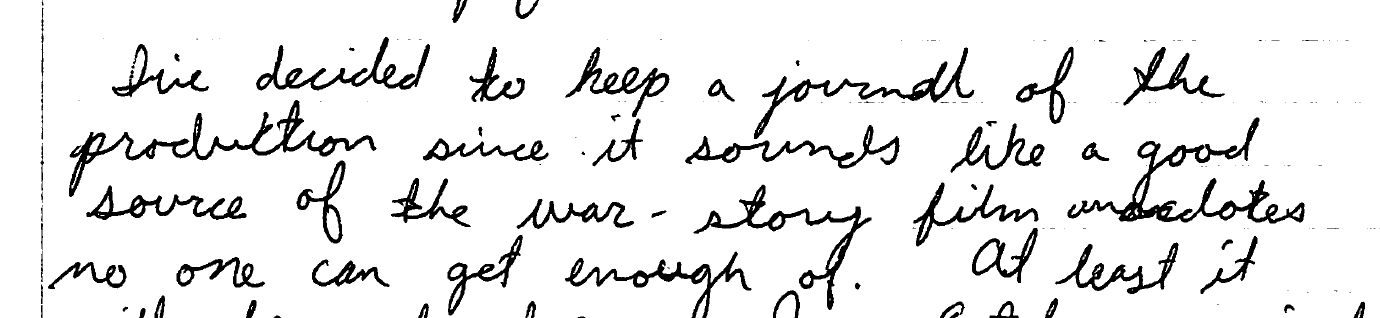 I've decided to keep a journal of the
production since it sounds like a good
source of the war-story film anecdotes
no one can get enough of. At least it